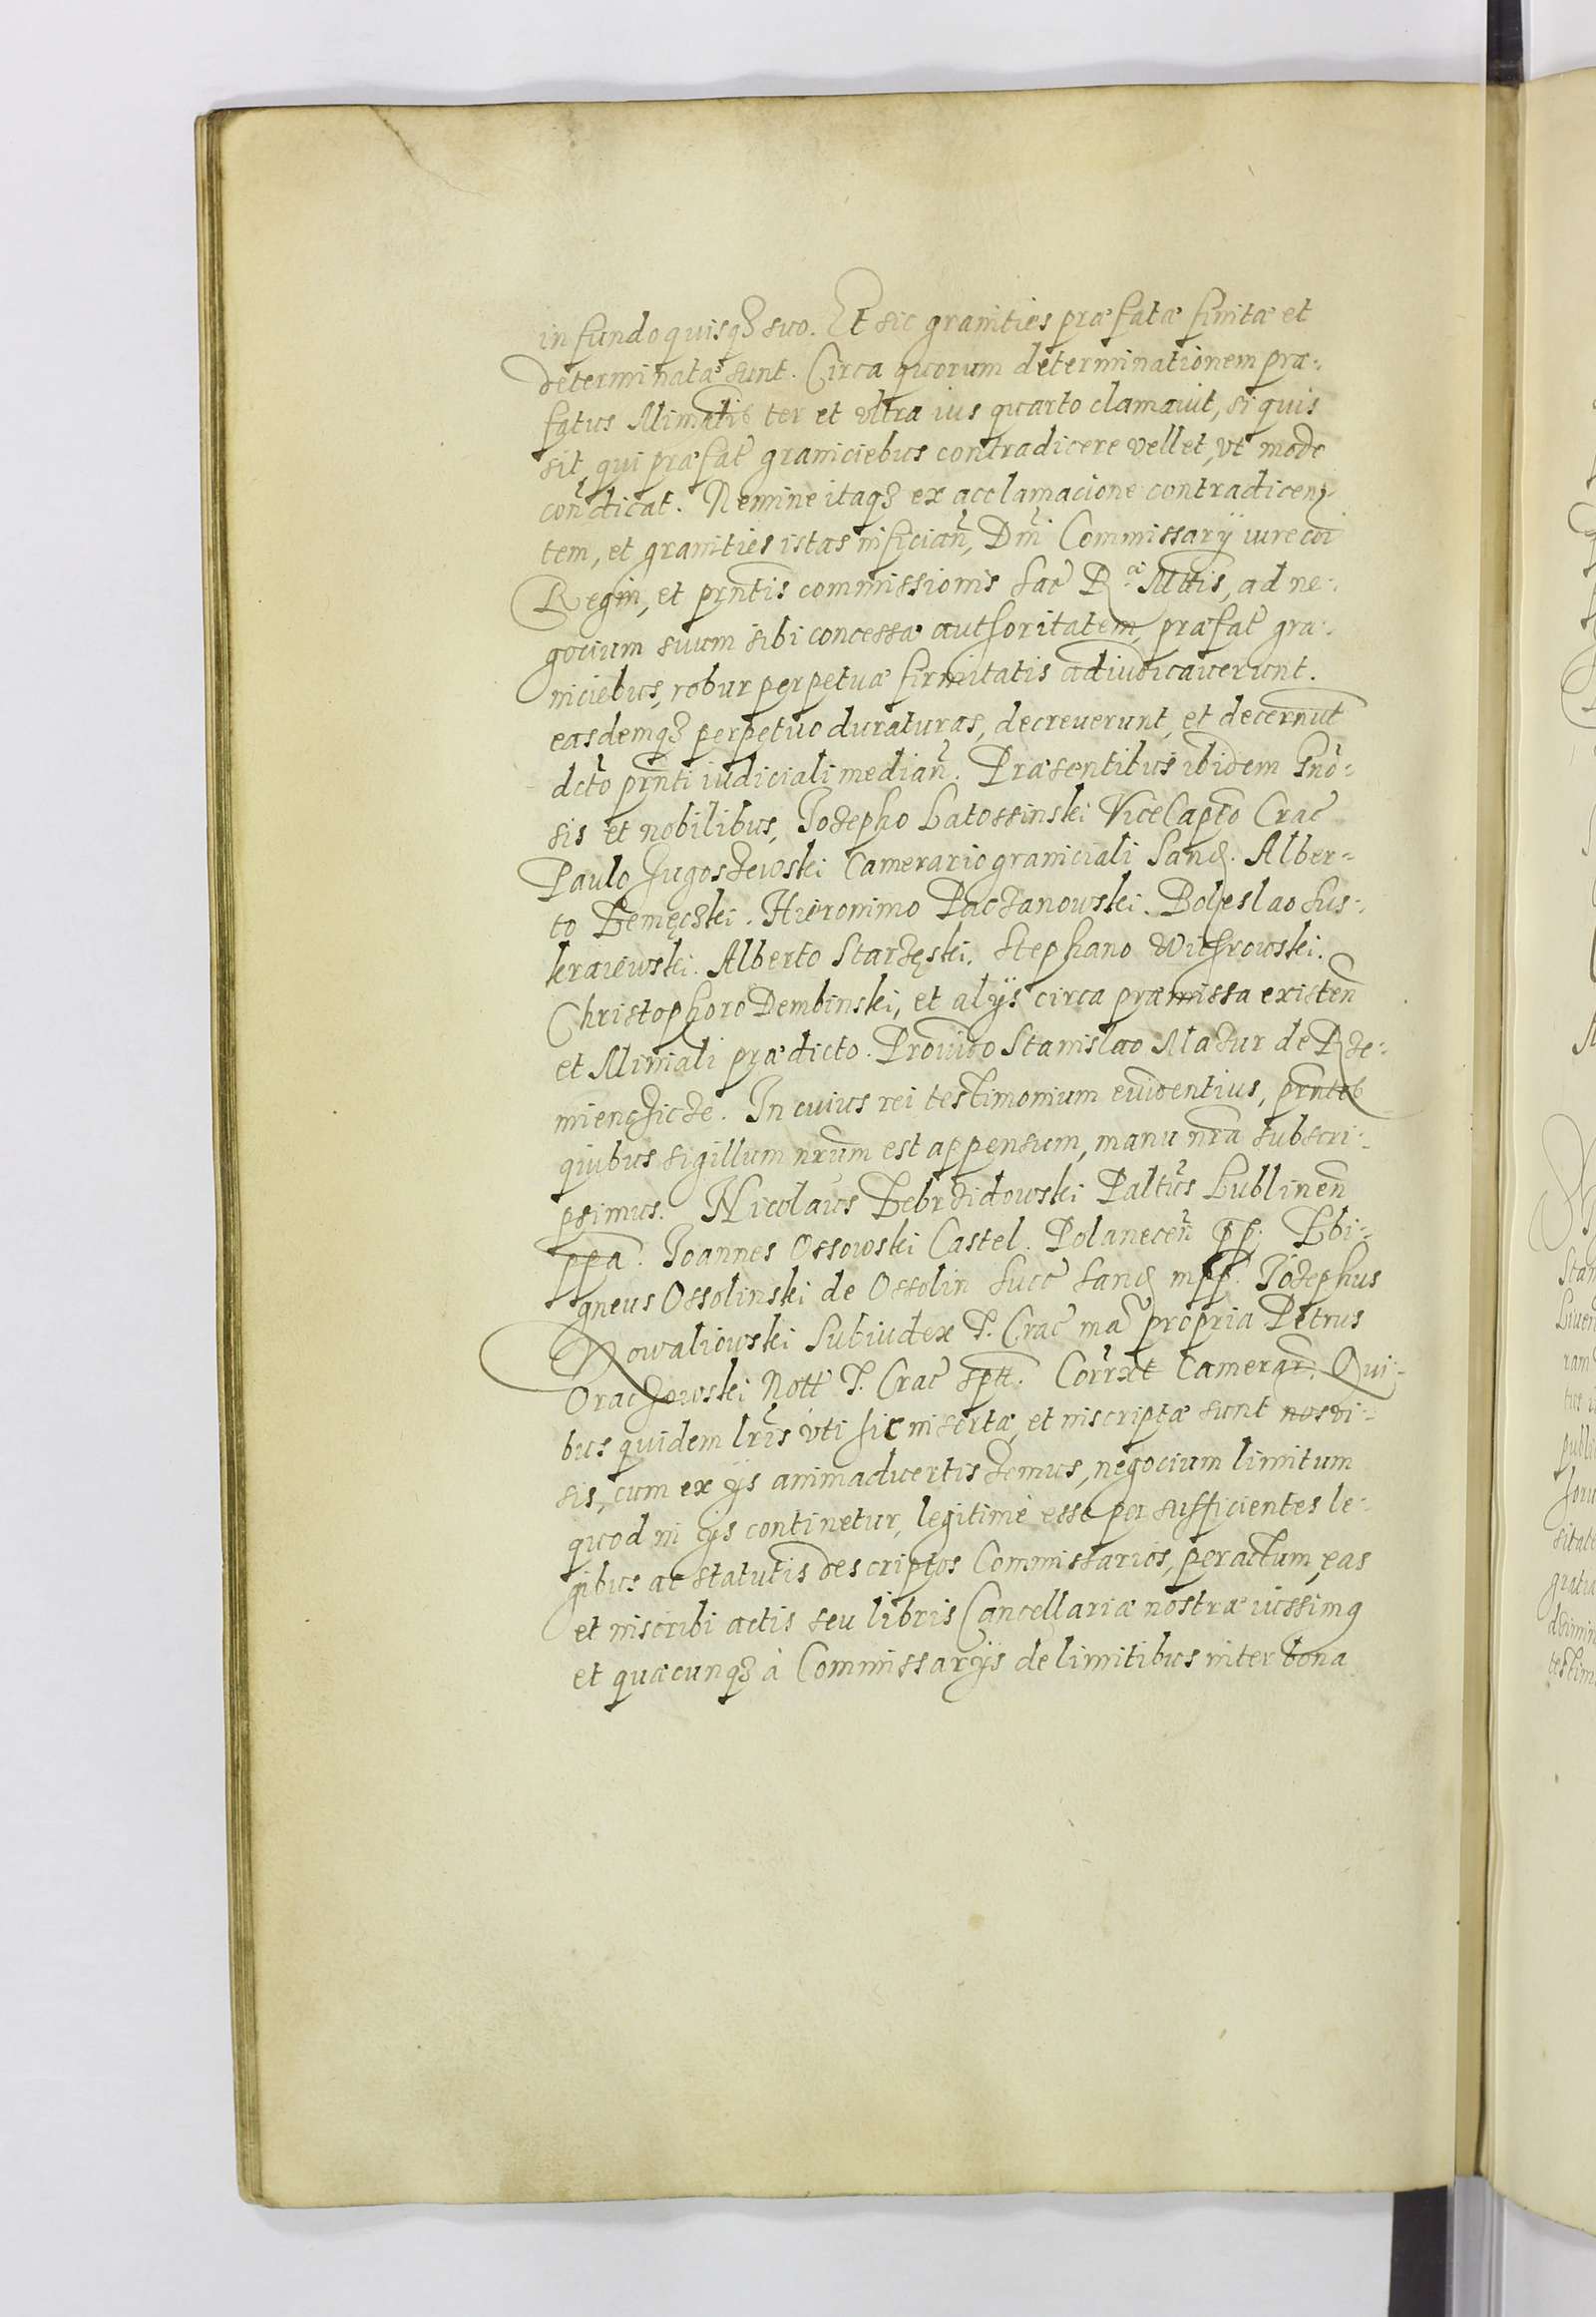 in fundo quisq₃ suo. Et sic granities præfatæ finitæ et
determinatæ sunt. Circa quorum determinationem præ-
fatus Minalis ter et vltra ius quarto clamauit, si quis
sit, qui præfat graniciebus contradicere vellet, vt modo
cond̃icat. Nemine itaq₃ ex acclamacione contradicen-
tem, et granities istas inficiañ, Dñi Commissarÿ iure coi
Regin, et pñtis commissionis Sac R. Mttis, ad ne-
gocium suum sibi concessa authoritatem, præfat gra-
niciebus, robur perpetuæ firmitatis adiudicauerunt.
easdemq₃ perpetuo duraturas, decreuerunt, et decernũt
dcto pñti iudiciali mediañ. Præsentibus ibidem Gño-
sis et nobilibus, Iozepho Latossinski ViceCapto Crac
Paulo Jugoszewski Camerario graniciali Sand. Alber-
to Bemęczki. Hieronimo Paczanowski. Boleslao Sus-
kraiewski. Alberto Starzęski. Stephano Withrowski.
Christophoro Dembinski, et alÿs circa præmissa existeñ
et Miniali prædicto. Prouido Stanislao Mazur de Rze-
mienczicze. In cuius rei testimonium euidentius, pñtes
quibus sigillum nrũm est appensum, manu nr̃a subscri-
psimus. Nicolaus Zebrzidowski Paltus Lublineñ
ppa. Ioannes Ossowski Castel. Polaneceñ pp. Zbi-
gneus Ossolinski de Ossolin Succ Sand mpp. Iozephus
Kowaliowski Subiudex T. Crac mã propria Petrus
Orachowski Nott T. Crac sptt. Corrxt Camerar̃. Qui-
bus quidem lr̃is vti sic insertæ, et inscriptæ sunt nos vi-
sis, cum ex ÿs animaduertissemus, negocium limitum
quod in ÿs continetur, legitimè esse per sufficientes le-
gibus ac statutis descriptos Commissarios, peractum, eas
et inscribi actis seu libris Cancellariæ nostræ iussimq
et quæcunq₃ à Commissarÿs de limitibus inter bona